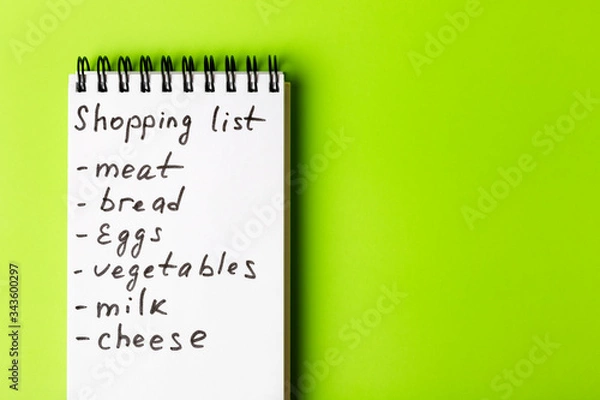 Shopping list
- meat
- bread
- Eggs
- vegetables
- milk
- cheese
Adobe Stock | #343600297